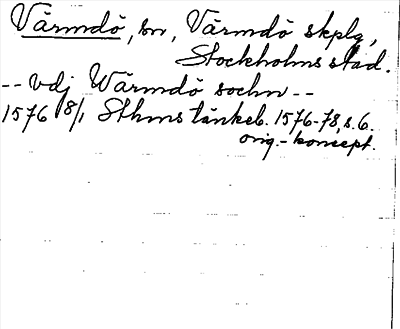 Värmdö, sn, Värmdö skplg,
Stockholms stad.
-- vdj Wärmdö sochn --
1576 18/1 Sthms tänkeb. 1576-78, s. 6.
orig.-koncept.